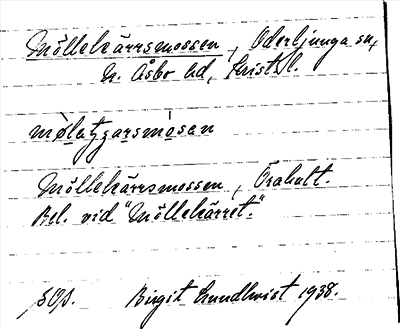 Möllekärrsmossen, Oderljunga sn,
N. Åsbo hd, Krist. l.
Möllekärrsmossen, Örahult.
Bel. vid "Möllekärret."
Birgit Lundkvist 1938.